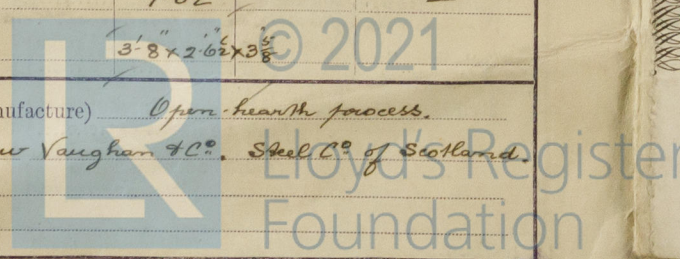 3'-8" x 2'-6½" x 3⅝
© 2021
nufacture) Open-hearth process.
Vaughan & Co. Steel Co. of Scotland.
LR
Lloyd's Register
Foundation